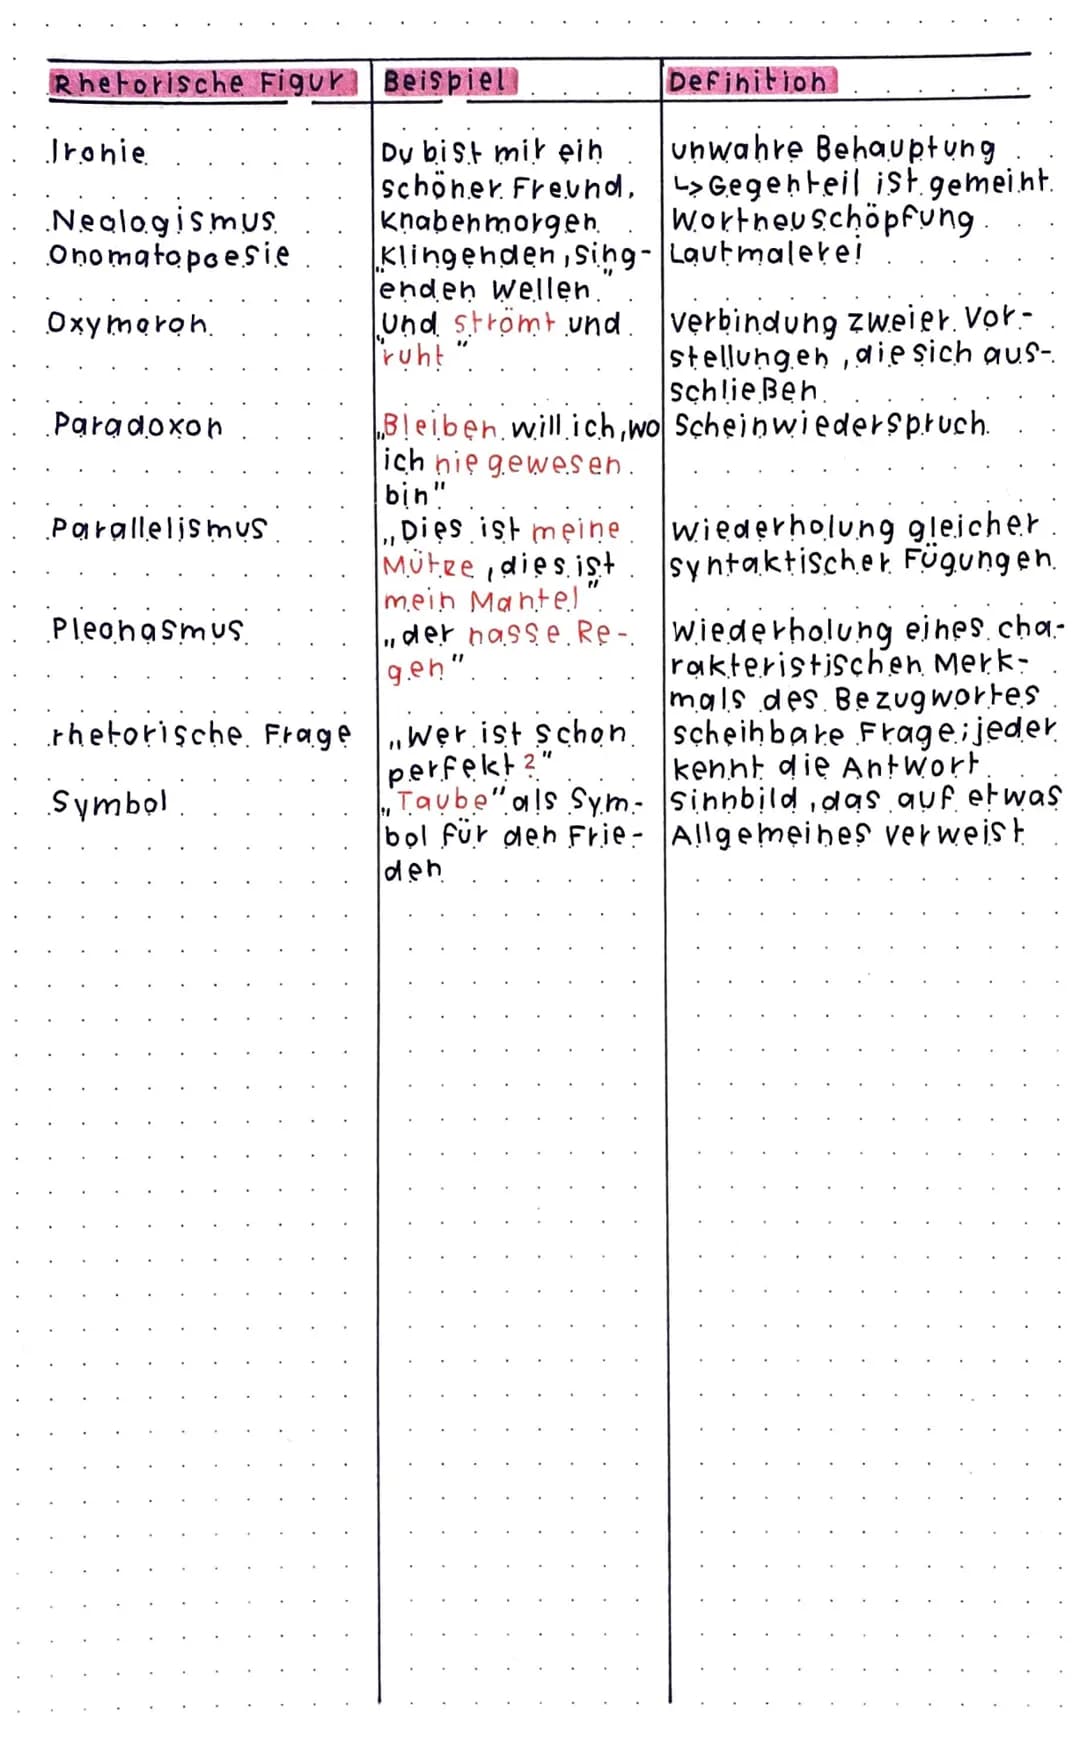 Rhetorische Figur Beispiel Definition
Ironie Du bist mir ein unwahre Behauptung
schöner Freund. ↳ Gegenteil ist gemeint.
Neologismus Knabenmorgen Wortneuschöpfung
Onomatopoesie „Klingenden, sing- Lautmalerei
enden Wellen"
Oxymoron „Und strömt und Verbindung zweier Vor-
ruht" stellungen, die sich aus-
schließen
Paradoxon „Bleiben will ich, wo Scheinwiederspruch
ich nie gewesen
bin"
Parallelismus „Dies ist meine Wiederholung gleicher
Mütze, dies ist syntaktischer Fügungen
mein Mantel"
Pleonasmus „der nasse Re- Wiederholung eines cha-
gen" rakteristischen Merk-
mals des Bezugwortes
rhetorische Frage „Wer ist schon scheinbare Frage; jeder
perfekt?" kennt die Antwort
Symbol „Taube" als Sym- Sinnbild, das auf etwas
bol für den Frie- Allgemeines verweist
den